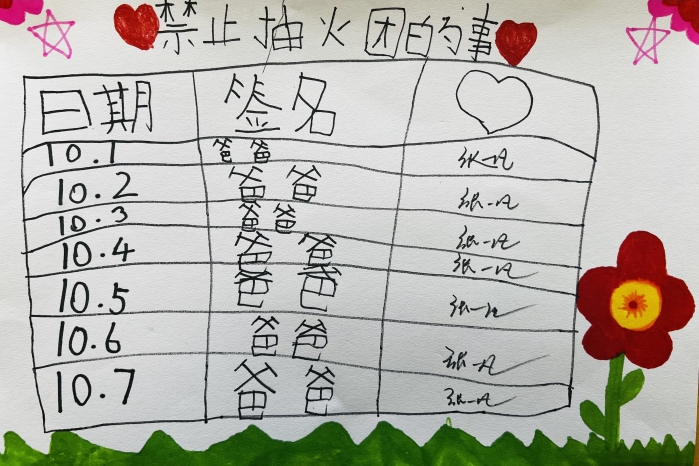 禁止抽火团的事
日期 签名
10.1 爸爸 张一凡
10.2 爸爸 张一凡
10.3 爸爸 张一凡
10.4 爸爸 张一凡
10.5 爸爸 张一凡
10.6 爸爸 张一凡
10.7 爸爸 张一凡